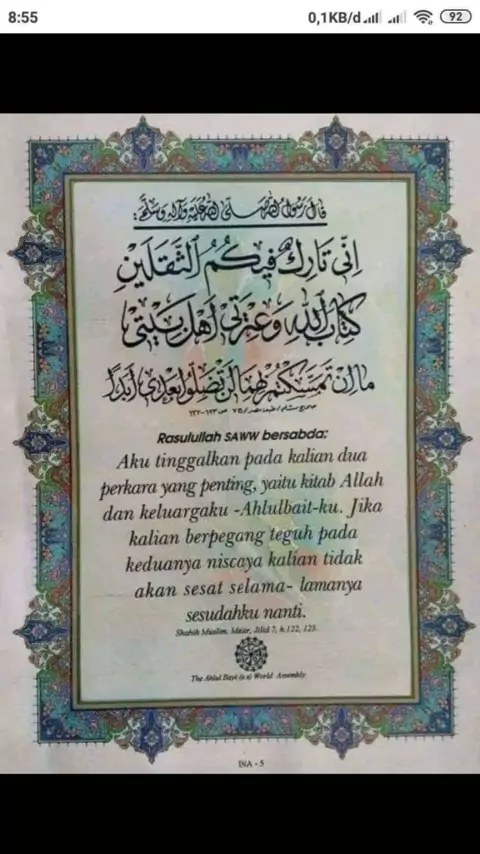 8:55
0,1KB/d
92
قال رسول الله صلى الله عليه وآله وسلم:
إني تارك فيكم الثقلين
كتاب الله وعترتي أهل بيتي
ما إن تمسكتم بهما لن تضلوا بعدي أبدا
Rasulullah SAWW bersabda:
Aku tinggalkan pada kalian dua
perkara yang penting, yaitu kitab Allah
dan keluargaku -Ahlulbait-ku. Jika
kalian berpegang teguh pada
keduanya niscaya kalian tidak
akan sesat selama- lamanya
sesudahku nanti.
Shahih Muslim, Mesir, Jilid 7, h.122, 123.
The Ahlul Bayt (a.s) World Assembly
INA - 5